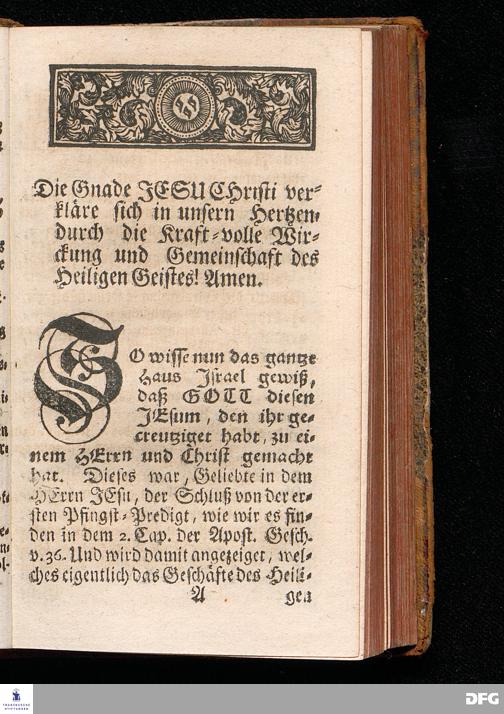 Die Gnade JESU CHristi ver-
kläre sich in unsern Hertzen,
durch die Kraft-volle Wir-
ckung und Gemeinschaft des
Heiligen Geistes! Amen.
SO wisse nun das gantze
Haus Israel gewiß,
daß GOTT diesen
JEsum, den ihr ge-
creutziget habt, zu ei-
nem HErrn und Christ gemacht
hat. Dieses war, Geliebte in dem
HErrn JEsu, der Schluß von der er-
sten Pfingst-Predigt, wie wir es fin-
den in dem 2. Cap. der Apost. Gesch.
v. 36. Und wird damit angezeiget, wel-
ches eigentlich das Geschäfte des Heili-
A gen
FRANCKESCHE
STIFTUNGEN
DFG